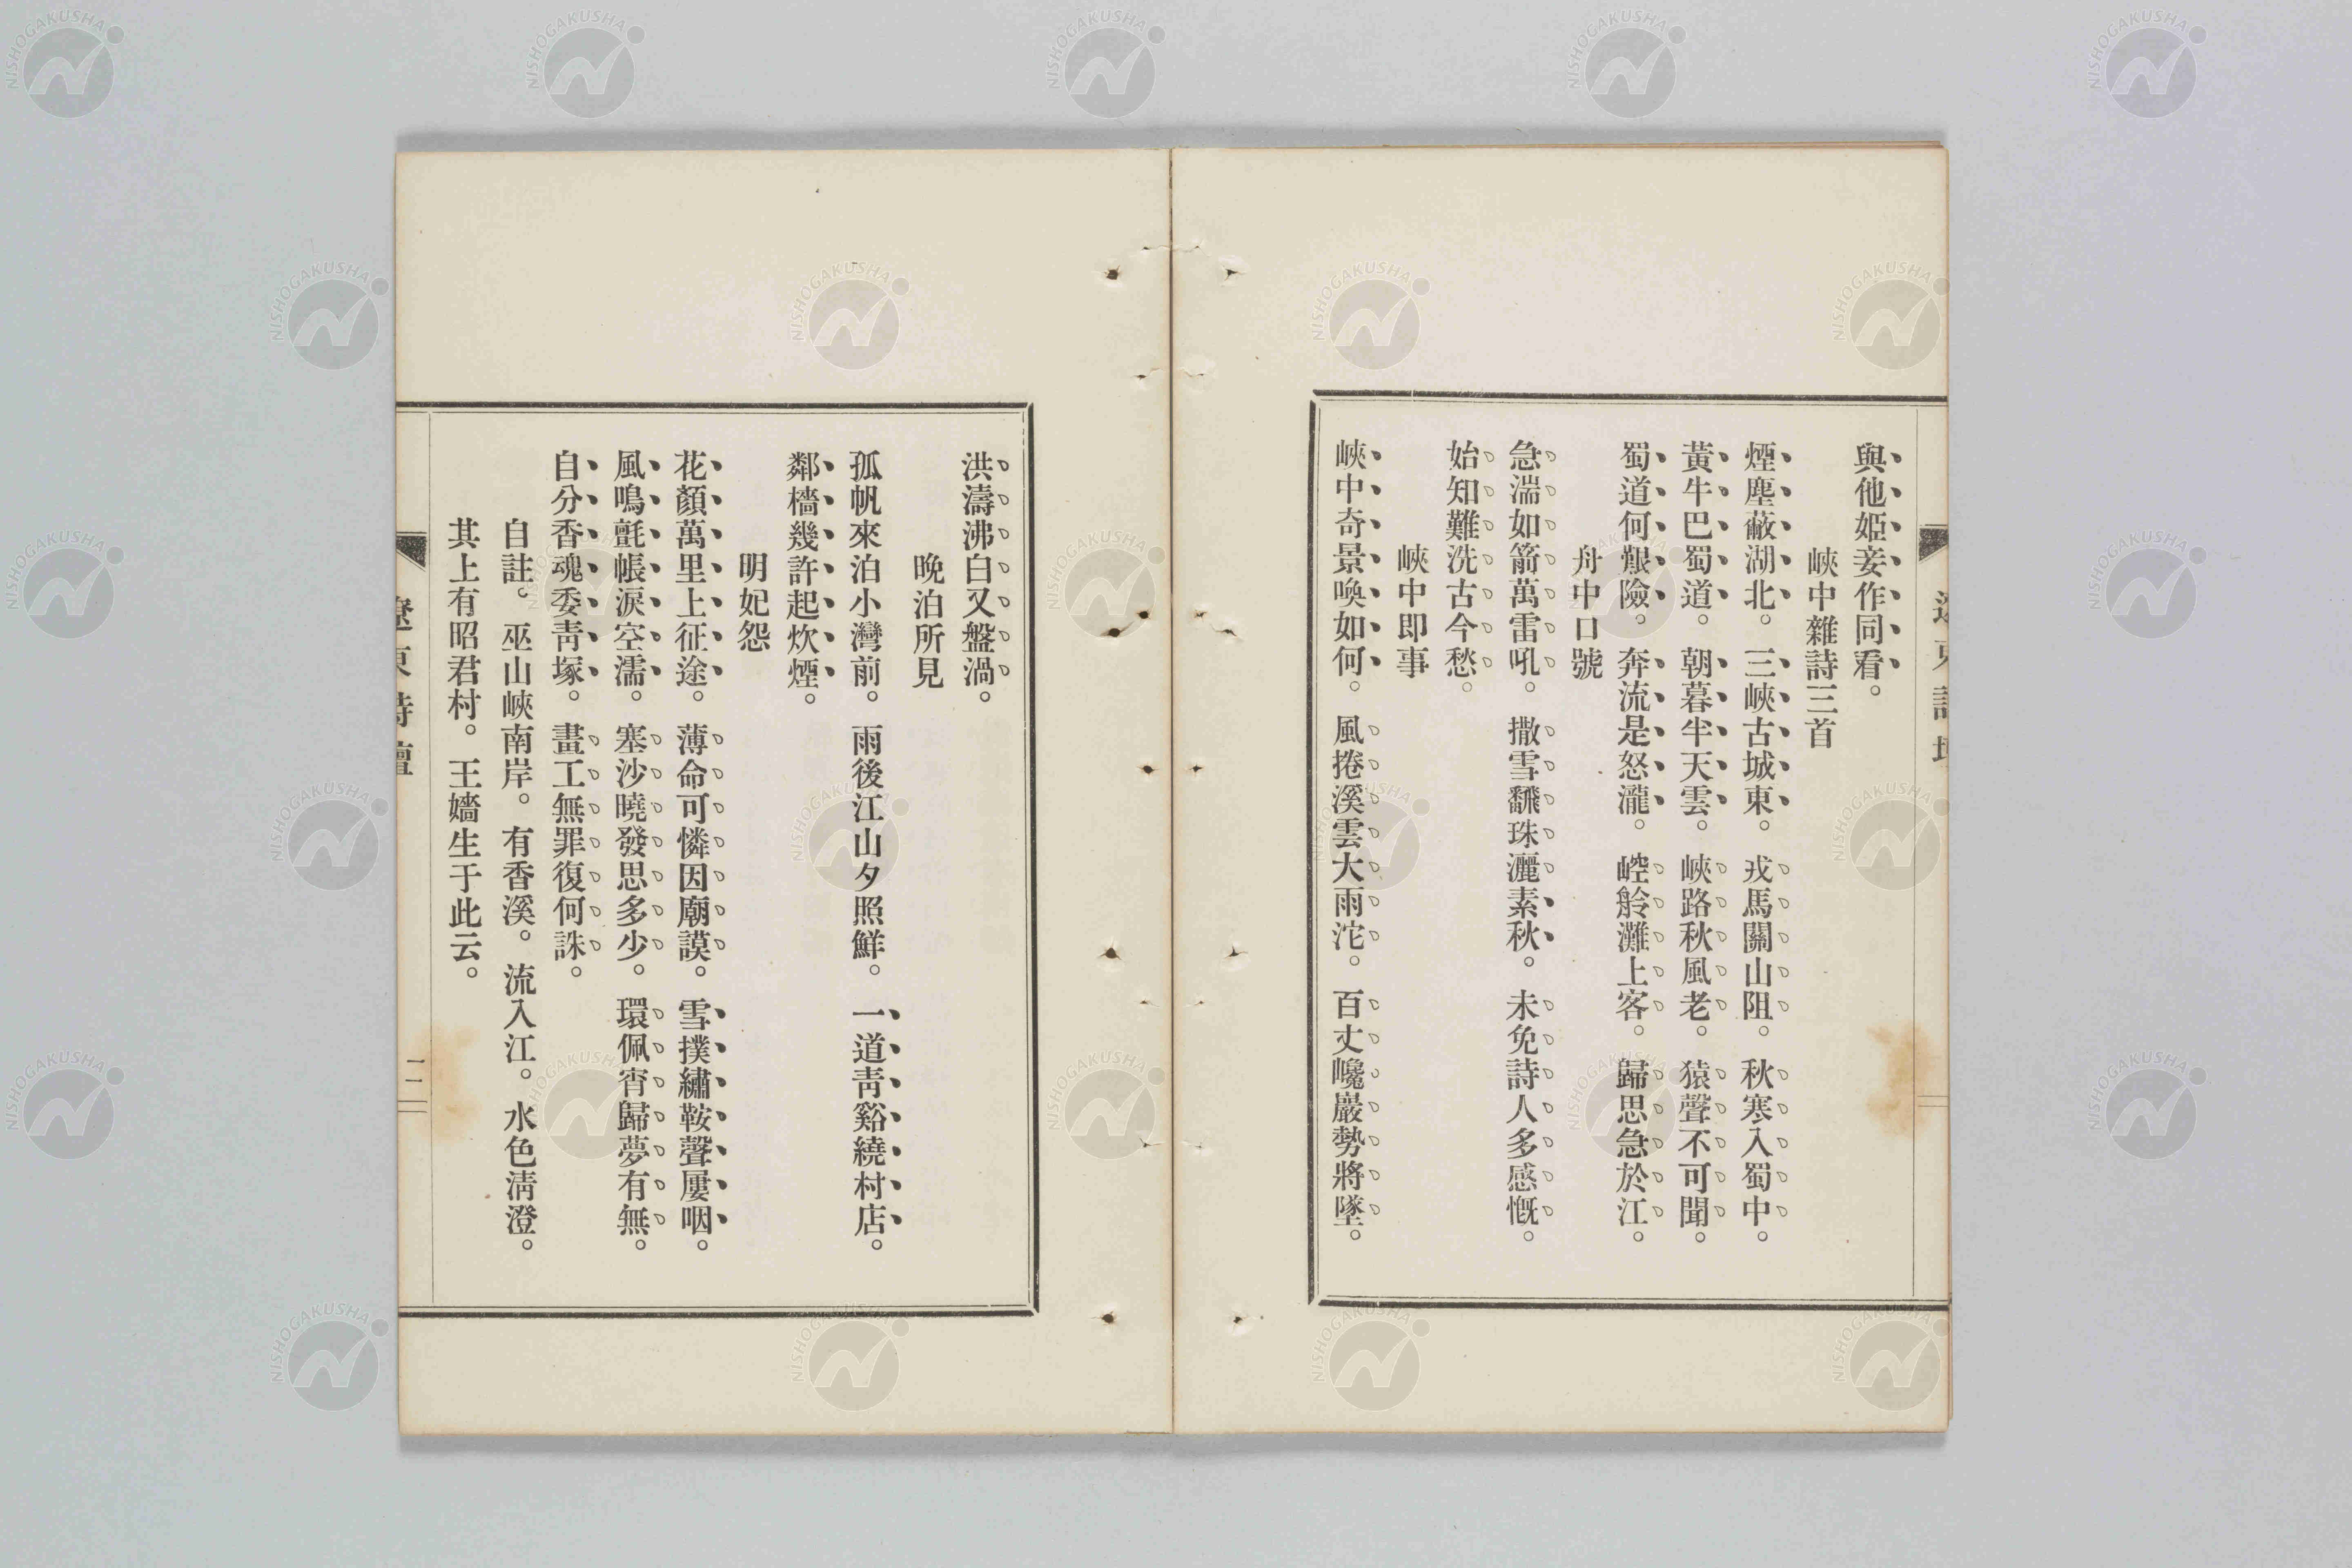 與他姬妾作同看。
峽中雜詩三首
煙塵蔽湖北。三峽古城東。戎馬關山阻。秋寒入蜀中。
黃牛巴蜀道。朝暮半天雲。峽路秋風老。猿聲不可聞。
蜀道何艱險。奔流是怒瀧。崆舲灘上客。歸思急於江。
舟中口號
急湍如箭萬雷吼。撒雪飜珠灑素秋。未免詩人多感慨。
始知難洗古今愁。
峽中即事
峽中奇景喚如何。風捲溪雲大雨沱。百丈巉巖勢將墜。
洪濤沸白又盤渦。
晚泊所見
孤帆來泊小灣前。雨後江山夕照鮮。一道靑谿繞村店。
鄰檣幾許起炊煙。
明妃怨
花顏萬里上征途。薄命可憐因廟謨。雪撲繡鞍聲屢咽。
風鳴氈帳淚空濡。塞沙曉發思多少。環佩宵歸夢有無。
自分香魂委靑塚。畫工無罪復何誅。
自註。巫山峽南岸。有香溪。流入江。水色淸澄。
其上有昭君村。王嬙生于此云。
遼東詩壇
一二
NISHOGAKUSHA